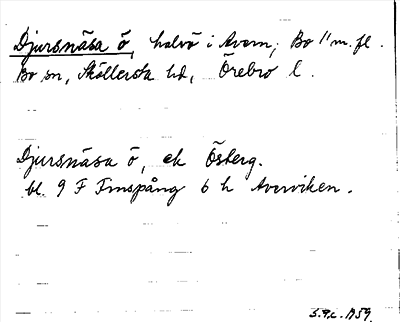 Djursnäsa ö, halvö i Avern, Bo 11 m. fl.
Bo sn, Sköllersta hd, Örebro l.
Djursnäsa ö, ek Österg.
bl. 9 F Finspång 6 h Averviken.
1959